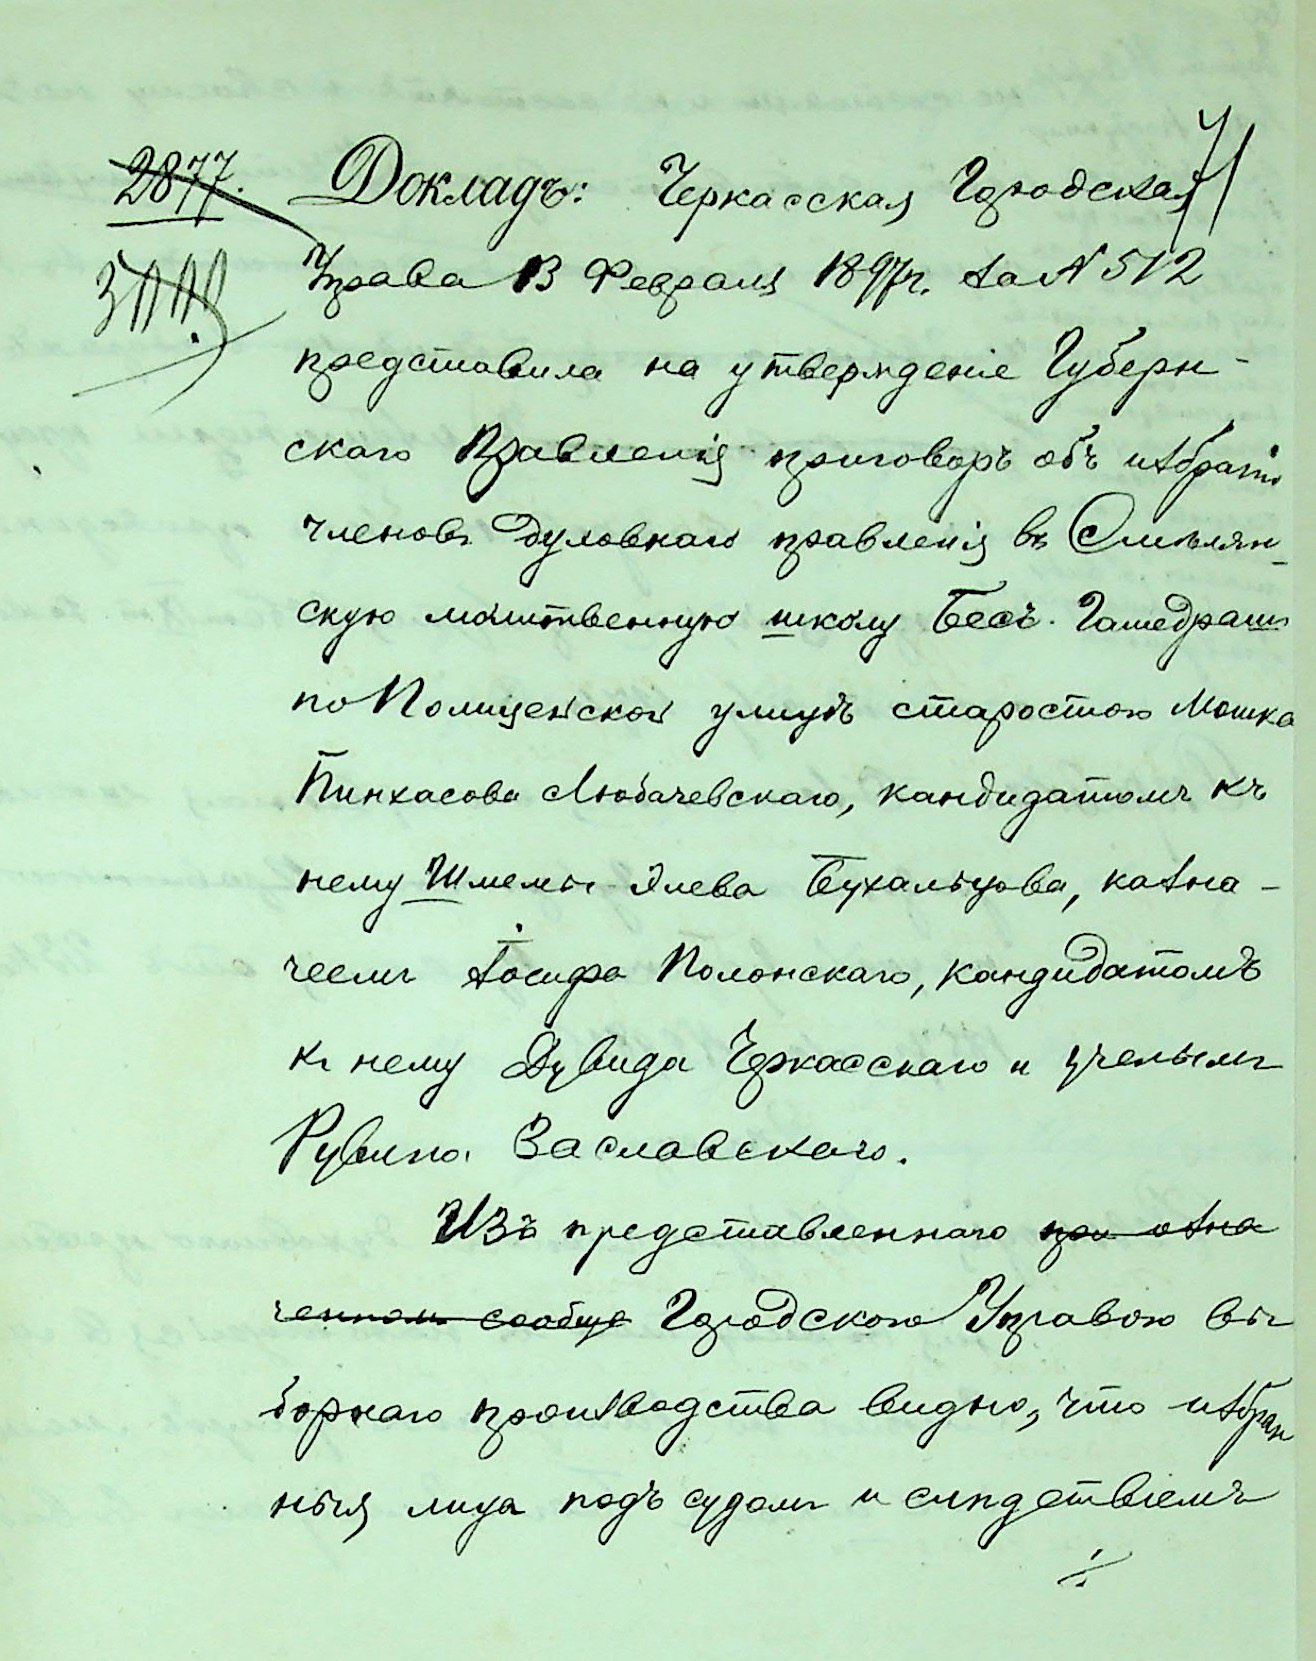 2877. Докладъ: Черкасская Городская
Управа 13 Февраля 1897г. за N 512
представила на утвержденіе Губерн-
скаго Правленія приговоръ объ избраніи
членовъ Духовнаго правленія въ Смѣлян-
скую молитвенную школу Бесъ-Гамедрашъ
по Полицейской улицѣ старостою Мошка
Пинхасова Любачевскаго, кандидатомъ къ
нему Шмелы Элева Бухальцова, казна-
чеемъ Іосифа Полонскаго, кандидатомъ
къ нему Дувида Черкасскаго и ученымъ
Рувина Заславскаго.
Изъ представленнаго при озна
ченномъ сообще Городскою Управою вы
борнаго производства видно, что избран
ныя лица подъ судомъ и слѣдствіемъ